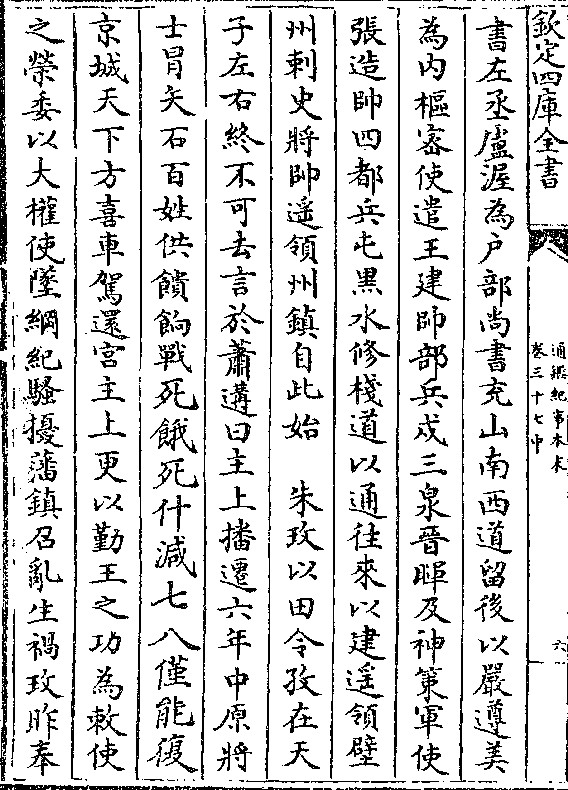 欽定四庫全書
通鑑紀事本末
卷三十七中
六
書左丞盧渥為户部尚書充山南西道留後以嚴遵美
為内樞密使遣王建帥部兵戍三泉晉暉及神策軍使
張造帥四都兵屯黒水修棧道以通往來以建遥領壁
州刺史將帥遥領州鎮自此始　朱玫以田令孜在天
子左右終不可去言於蕭遘曰主上播遷六年中原將
士冒矢石百姓供饋餉戰死餓死什減七八僅能復
京城天下方喜車駕還宫主上更以勤王之功為敕使
之榮委以大權使墜綱紀騷擾藩鎮召亂生禍玫昨奉